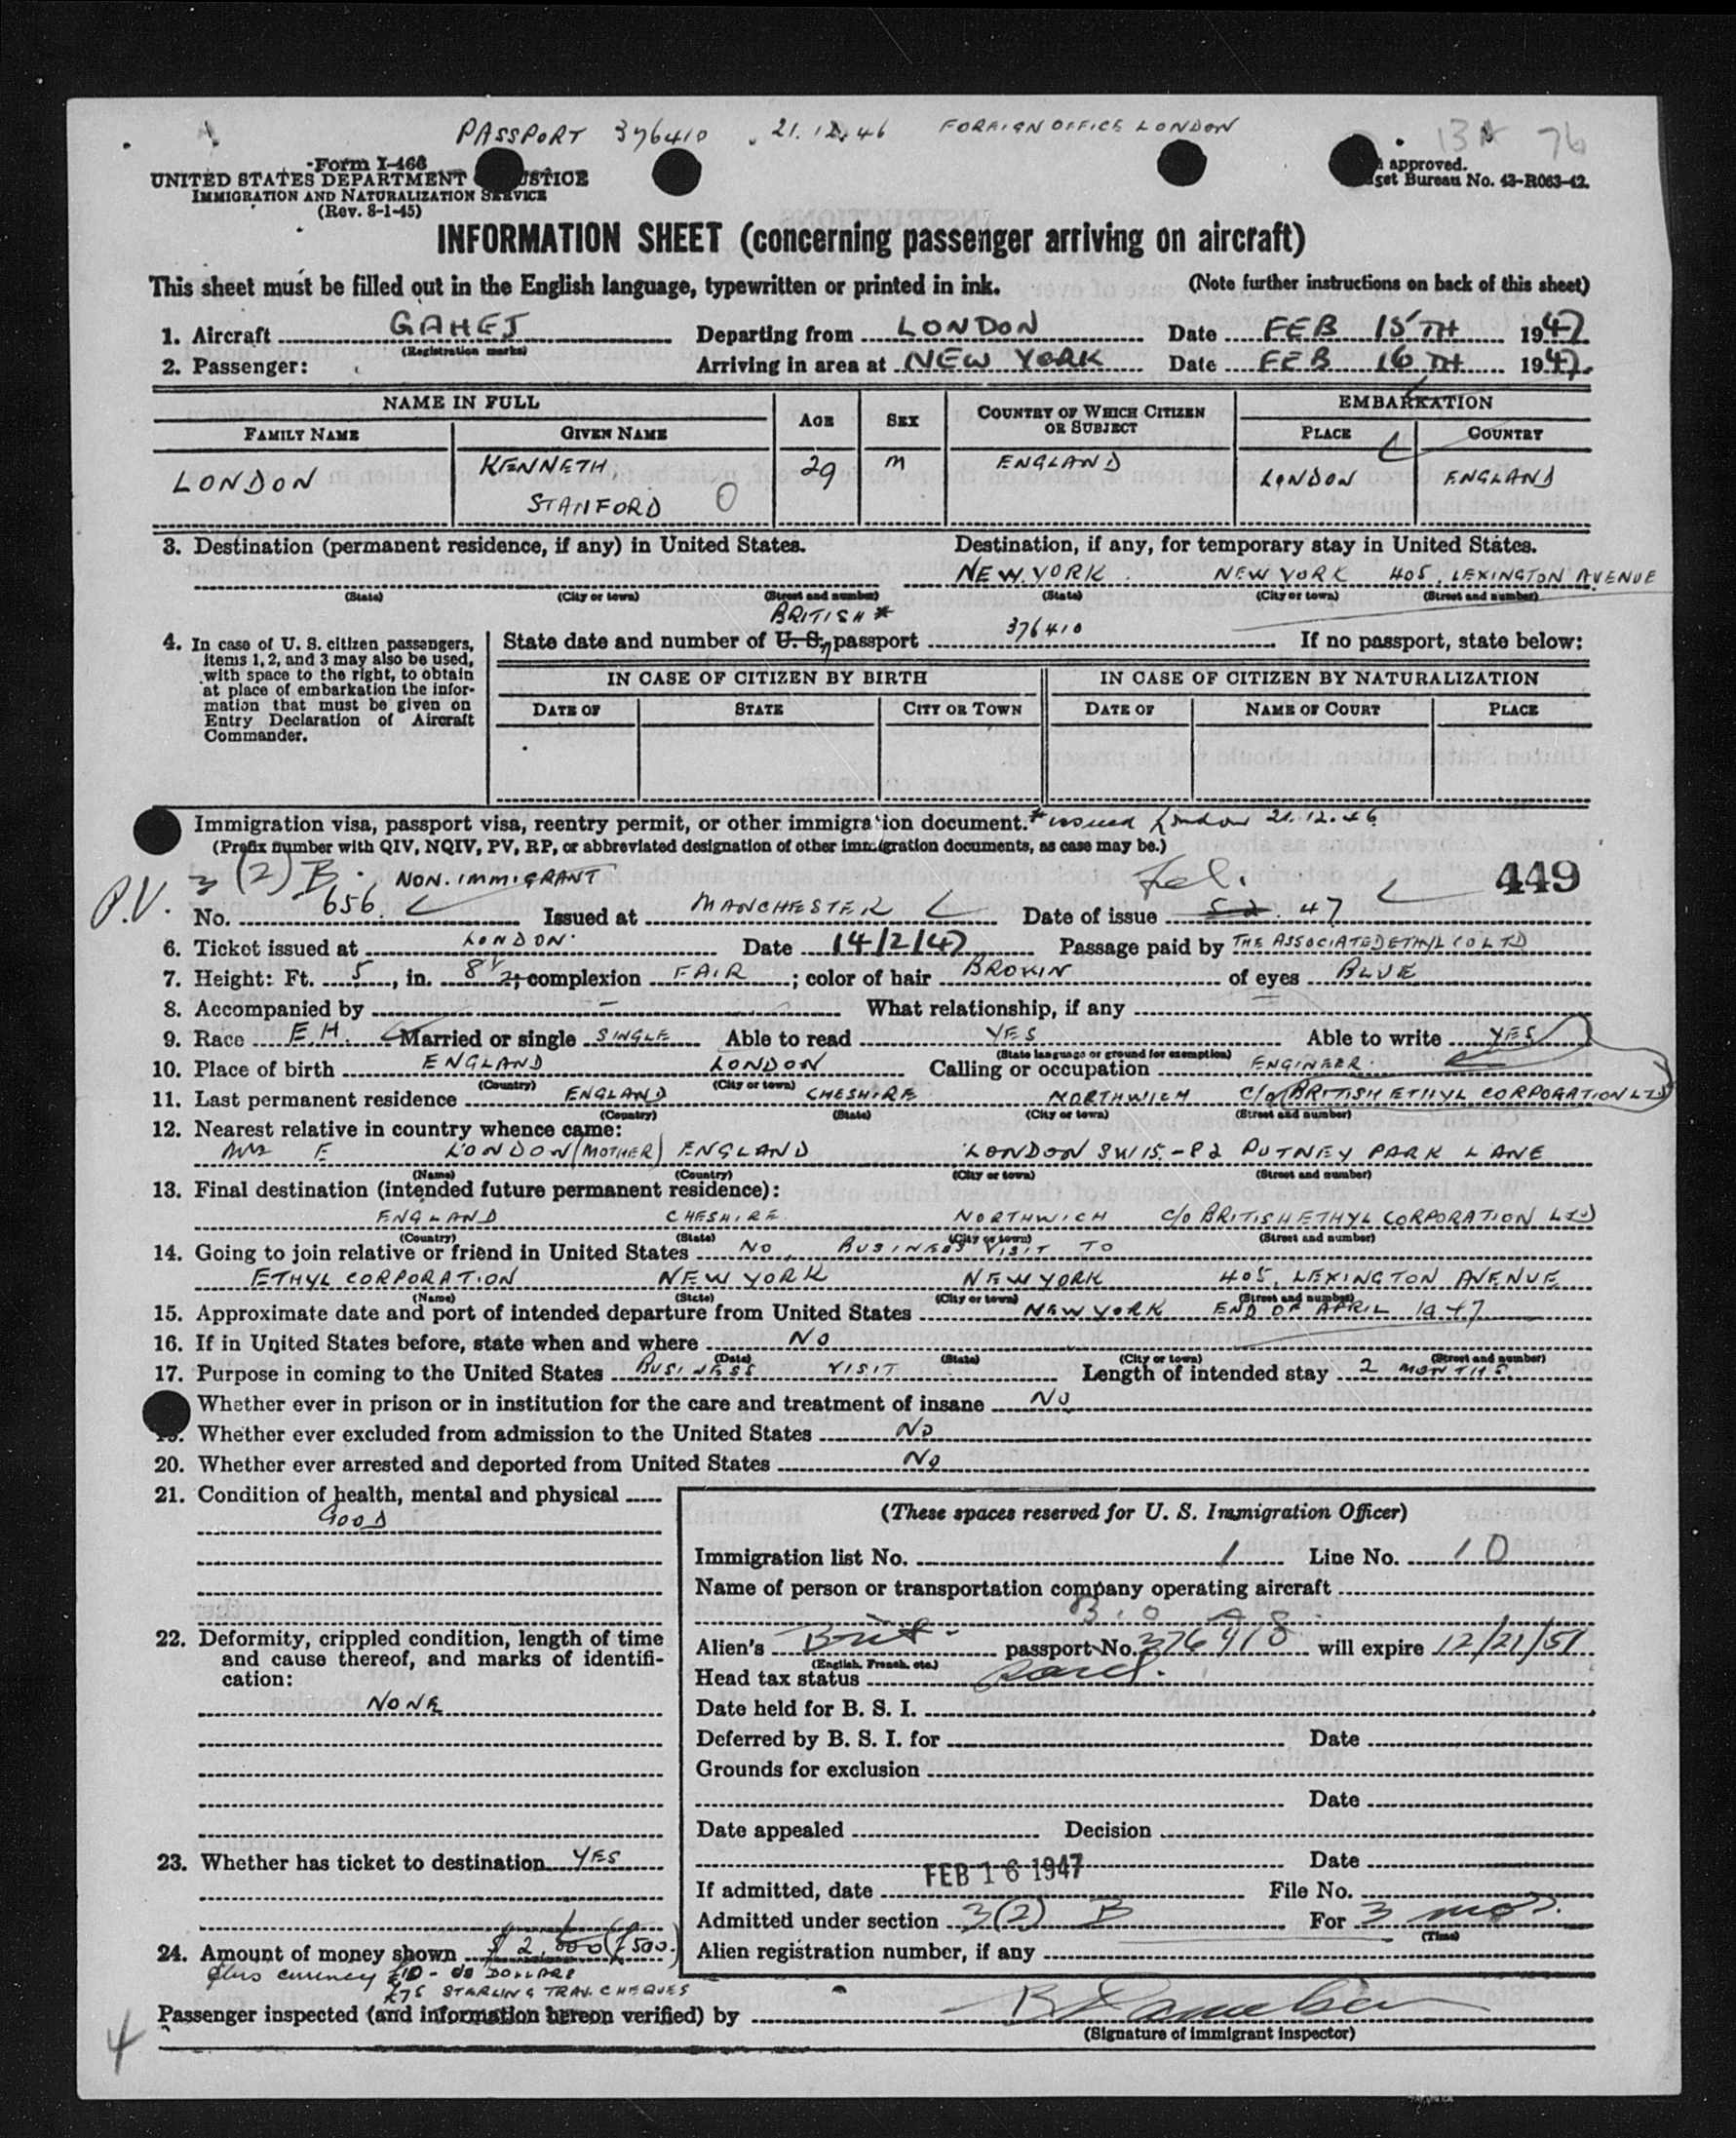 PASSPORT 376410 . 21.12.46 FOREIGN OFFICE LONDON 13 76
Form I-466
UNITED STATES DEPARTMENT JUSTICE
IMMIGRATION AND NATURALIZATION SERVICE
(Rev. 8-1-45)
approved.
get Bureau No. 43-R063-42.
INFORMATION SHEET (concerning passenger arriving on aircraft)
This sheet must be filled out in the English language, typewritten or printed in ink. (Note further instructions on back of this sheet)
1. Aircraft GAHEJ Departing from LONDON Date FEB 15TH 1947
(Registration marks)
2. Passenger: Arriving in area at NEW YORK Date FEB 16TH 1947.
NAME IN FULL AGE SEX COUNTRY OF WHICH CITIZEN OR SUBJECT EMBARKATION
FAMILY NAME GIVEN NAME PLACE COUNTRY
LONDON KENNETH STANFORD 0 29 M ENGLAND LONDON ENGLAND
3. Destination (permanent residence, if any) in United States. Destination, if any, for temporary stay in United States.
NEW YORK NEW YORK 405, LEXINGTON AVENUE
(State) (City or town) (Street and number) (State) (City or town) (Street and number)
BRITISH *
4. In case of U. S. citizen passengers, items 1, 2, and 3 may also be used, with space to the right, to obtain at place of embarkation the information that must be given on Entry Declaration of Aircraft Commander.
State date and number of U. S. passport 376410 If no passport, state below:
IN CASE OF CITIZEN BY BIRTH IN CASE OF CITIZEN BY NATURALIZATION
DATE OF STATE CITY OR TOWN DATE OF NAME OF COURT PLACE
Immigration visa, passport visa, reentry permit, or other immigration document. * issued London 21.12.46
(Prefix number with QIV, NQIV, PV, RP, or abbreviated designation of other immigration documents, as case may be.)
P.V. 3 (2) B. NON. IMMIGRANT Fel. 449
No. 656 Issued at MANCHESTER Date of issue 5 2. 47
6. Ticket issued at LONDON Date 14/2/47 Passage paid by THE ASSOCIATED ETHYL CO LTD
7. Height: Ft. 5, in. 8 1/2; complexion FAIR; color of hair BROWN of eyes BLUE
8. Accompanied by – What relationship, if any –
9. Race E.H. Married or single SINGLE Able to read YES Able to write YES
(State language or ground for exemption)
10. Place of birth ENGLAND LONDON Calling or occupation ENGINEER.
(Country) (City or town)
11. Last permanent residence ENGLAND CHESHIRE NORTHWICH C/O BRITISH ETHYL CORPORATION LTD
(Country) (State) (City or town) (Street and number)
12. Nearest relative in country whence came:
MRS E LONDON (MOTHER) ENGLAND LONDON SW15.-82 PUTNEY PARK LANE
(Name) (Country) (City or town) (Street and number)
13. Final destination (intended future permanent residence):
ENGLAND CHESHIRE NORTHWICH C/O BRITISH ETHYL CORPORATION LTD
(Country) (State) (City or town) (Street and number)
14. Going to join relative or friend in United States NO, BUSINESS VISIT TO
ETHYL CORPORATION NEW YORK NEW YORK 405, LEXINGTON AVENUE
(Name) (State) (City or town) (Street and number)
15. Approximate date and port of intended departure from United States NEW YORK END OF APRIL 1947
16. If in United States before, state when and where NO
(Date) (State) (City or town) (Street and number)
17. Purpose in coming to the United States BUSINESS VISIT Length of intended stay 2 MONTHS
Whether ever in prison or in institution for the care and treatment of insane NO
19. Whether ever excluded from admission to the United States NO
20. Whether ever arrested and deported from United States NO
21. Condition of health, mental and physical
GOOD
22. Deformity, crippled condition, length of time and cause thereof, and marks of identification:
NONE
23. Whether has ticket to destination YES
24. Amount of money shown $ 2,000 (£500.)
plus currency £10 - do DOLLARS
£75 STERLING TRAV. CHEQUES
(These spaces reserved for U. S. Immigration Officer)
Immigration list No. 1 Line No. 10
Name of person or transportation company operating aircraft
B. O A S.
Alien's Brit. passport No. 376410 will expire 12/21/51
(English, French, etc.)
Head tax status
Date held for B. S. I.
Deferred by B. S. I. for Date
Grounds for exclusion
Date
Date appealed Decision
Date
FEB 16 1947
If admitted, date File No.
Admitted under section 3(2) B For 3 mos.
(Time)
Alien registration number, if any
Passenger inspected (and information hereon verified) by
(Signature of immigrant inspector)
4